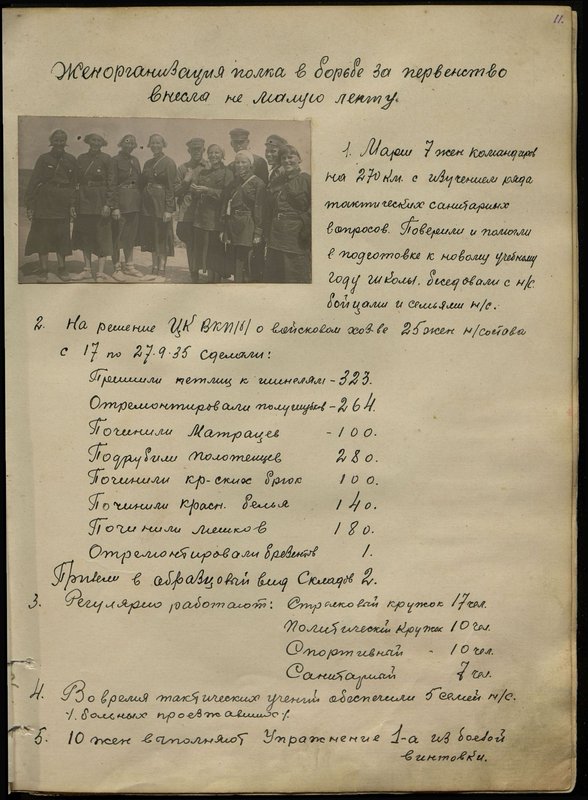 11.
Женорганизация полка в борьбе за первенство
внесла не малую лепту.
1. Марш 7 жен командиров
на 270 км. с изучением ряда
тактических санитарных
вопросов. Поверили и помогли
в подготовке к новому учебному
году школы, беседовали с н/с.
бойцами и семьями н/с.
2. На решение ЦК ВКП/б/ о войсковом хоз-ве 25 жен н/состава
с 17 по 27.9.35 сделали:
Пришили петлиц к шинелям - 323.
Отремонтировали полушубков - 264.
Починили Матрацев - 100.
Подрубили полотенцев 280.
Починили кр-ских брюк 100.
Починили красн. белья 140.
Починили мешков 180.
Отремонтировали брезентов 1.
Привели в образцовый вид Складов 2.
3. Регулярно работают: Стрелковый кружок 17 чел.
Политический кружок 10 чел.
Спортивный - 10 чел.
Санитарный 7 чел.
4. Во время тактических учений обеспечили 5 семей н/с.
/. больных проезжавших /.
5. 10 жен выполняют Упражнение 1-а из боевой
винтовки.